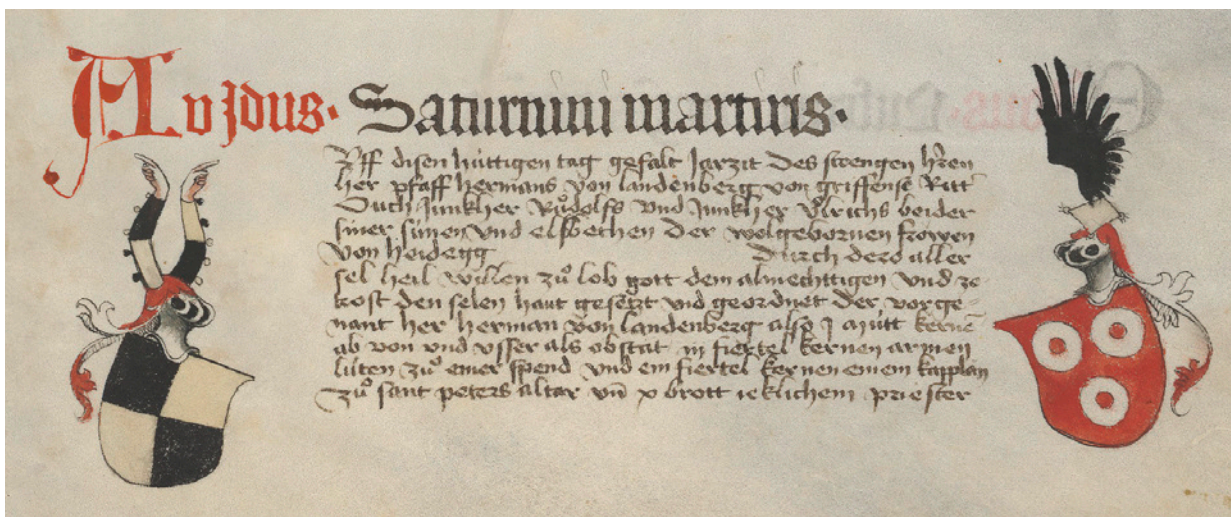 A v Jdus. Saturnini martiris.
Vff disen hüttigen tag gefalt Jarzit des strengen hren
her pfaff hermans von landenberg von griffense Ritt
Ouch Junkher Růdolfs vnd Junkher vlrichs beider
siner sünen vnd elsbethen der wolgebornen frowen
von heidegg durch dero aller
sel heil willen zů lob gott dem almechttigen vnd ze
trost den selen haut gesetzt vnd geordnet der vorge-
nant her herman von landenberg also j mütt kernē
ab von vnd vsser als obstat iij fiertel kernen armen
lüten zů einer spend vnd ein fiertel kernen einem kapplan
zů sant peters altar vn̄ x brott ieklichem priester